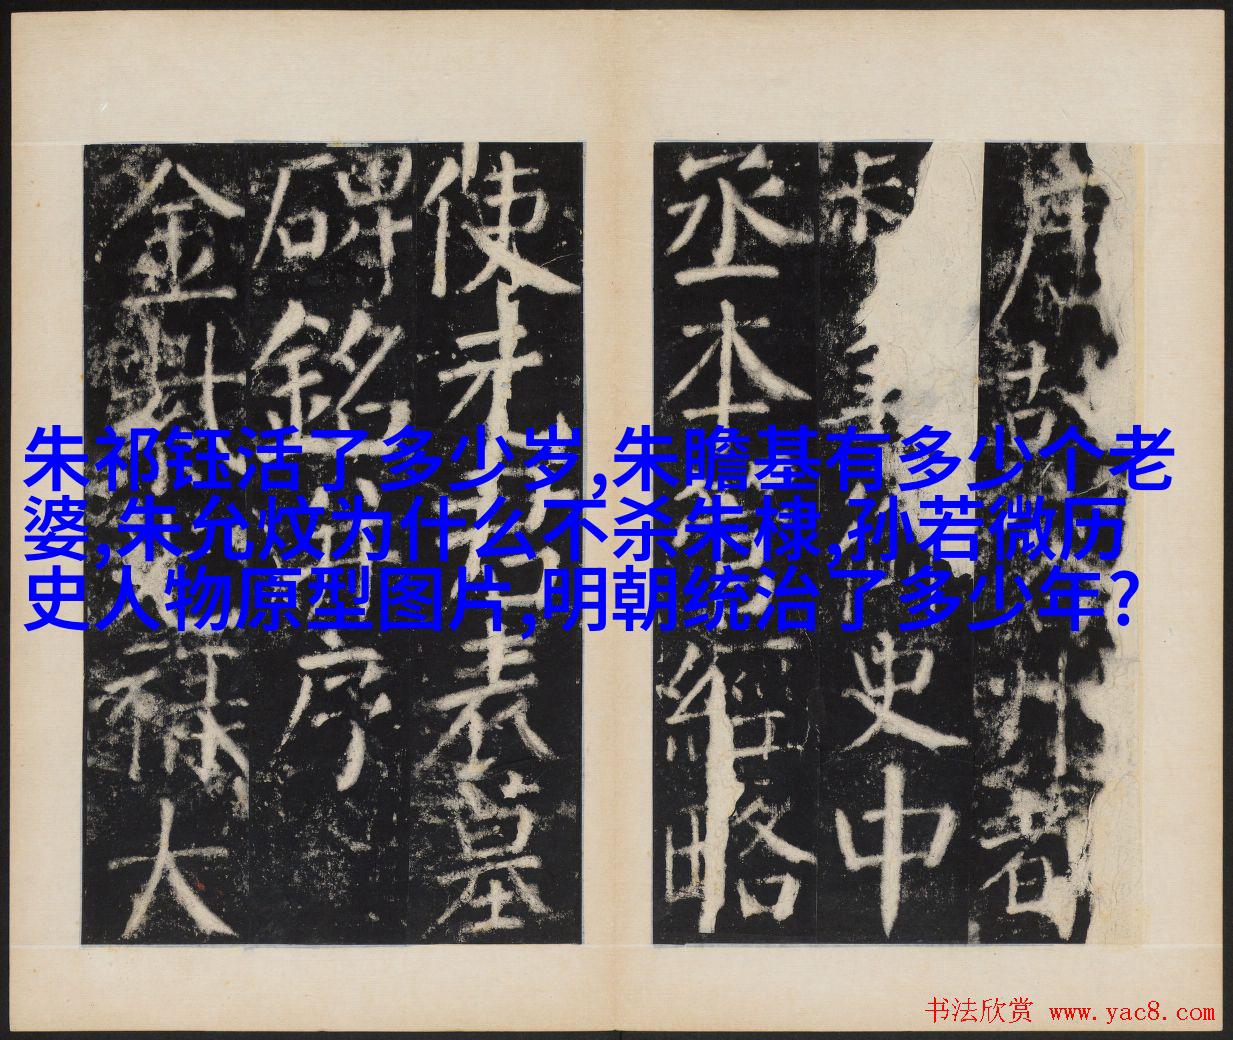 朱祁钰活了多少岁,朱瞻基有多少个老
婆,朱允炆为什么不杀朱棣,孙若微历
史人物原型图片,明朝统治了多少年?
故州
史中
丞本經略
使表墓
碑銘序
金祿大
书法欣赏 www.yac8.com